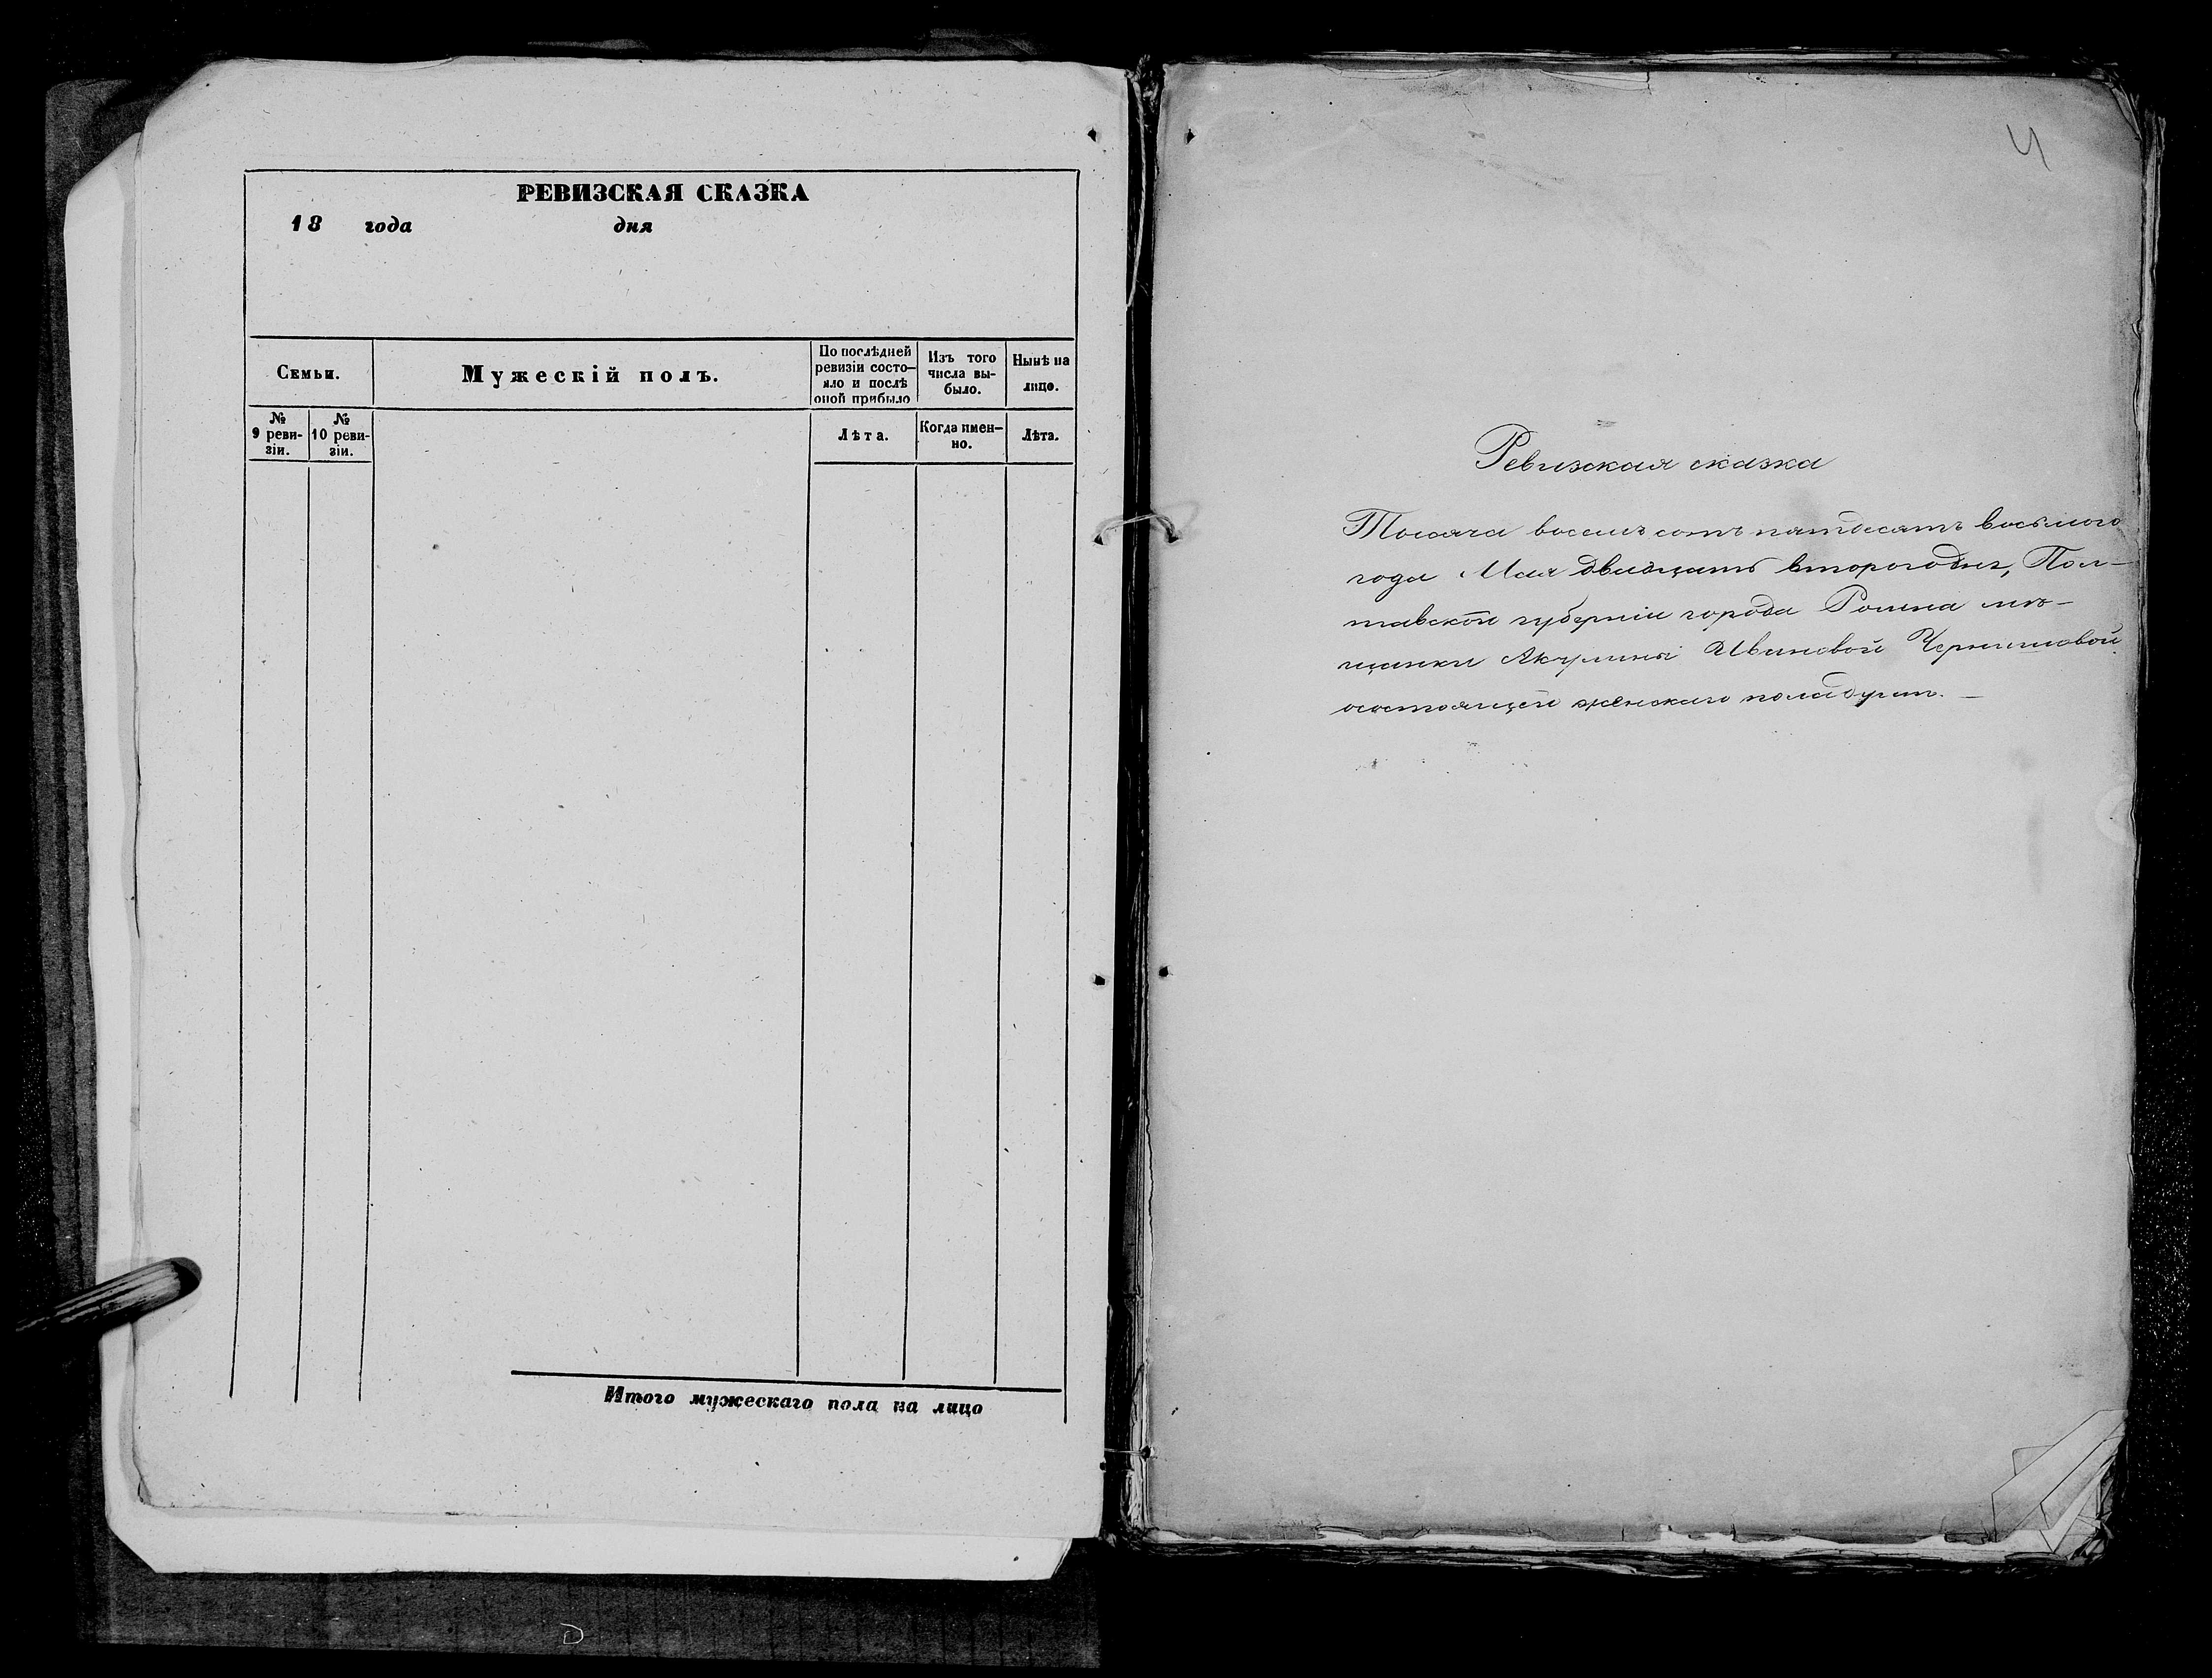 РЕВИЗСКАЯ СКАЗКА
18 года дня
Семьи.
Мужескій полъ.
По послѣдней
ревизіи состо-
яло и послѣ
оной прибыло
Изъ того
числа вы-
было.
Нынѣ на
лицо.
№
9 реви-
зіи.
№
10 реви-
зіи.
Лѣта.
Когда имен-
но.
Лѣта.
Итого мужескаго пола на лицо
4
Ревизская сказка
Тысяча восемь сотъ пятдесятъ восьмого
года Мая двадцать второго дня, Пол-
тавской губерніи города Ромна мѣ-
щанки Акулины Ивановой
состоящей женскаго пола душъ. —